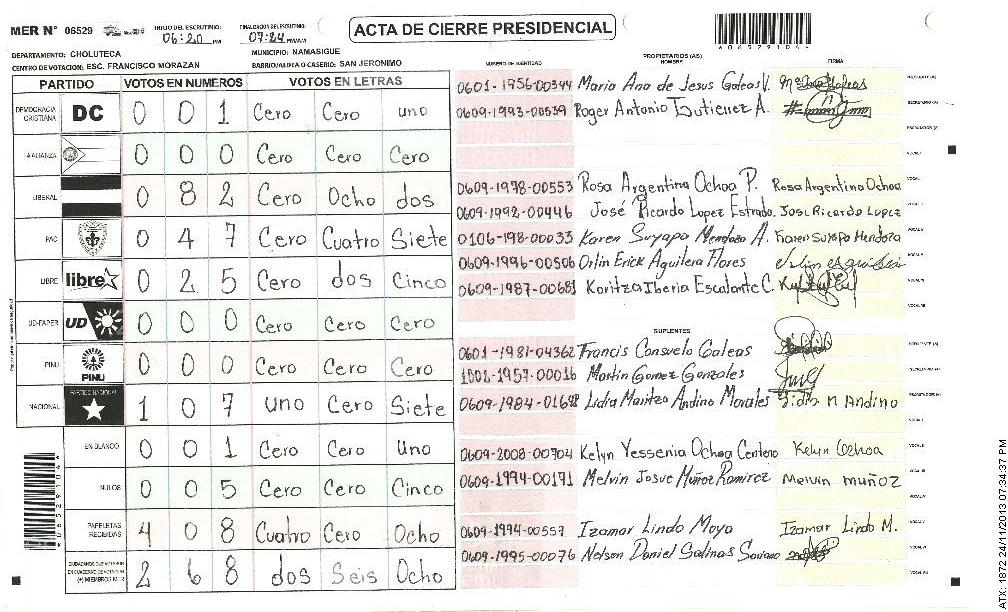 MER N° 06529
INICIO DEL ESCRUTINIO: 06:20 PM
FINALIZACION DEL ESCRUTINIO: 07:24
ACTA DE CIERRE PRESIDENCIAL
DEPARTAMENTO: CHOLUTECA
MUNICIPIO: NAMASIGUE
CENTRO DE VOTACION: ESC. FRANCISCO MORAZAN
BARRIO/ALDEA O CASERIO: SAN JERONIMO
PARTIDO VOTOS EN NUMEROS VOTOS EN LETRAS
DEMOCRACIA CRISTIANA DC 0 0 1 Cero Cero uno
LA ALIANZA 0 0 0 Cero Cero Cero
LIBERAL 0 8 2 Cero Ocho dos
PAC 0 4 7 Cero Cuatro Siete
LIBRE libre 0 2 5 Cero dos Cinco
UD-FAPER UD 0 0 0 Cero Cero Cero
PINU PINU 0 0 0 Cero Cero Cero
NACIONAL PARTIDO NACIONAL 1 0 7 uno Cero Siete
EN BLANCO 0 0 1 Cero Cero Uno
NULOS 0 0 5 Cero Cero Cinco
PAPELETAS RECIBIDAS 4 0 8 Cuatro Cero Ocho
CIUDADANOS QUE VOTARON EN CUADERNO DE VOTACION (+) MIEMBROS MER 2 6 8 dos Seis Ocho
NUMERO DE IDENTIDAD
PROPIETARIOS (AS)
NOMBRE
FIRMA
0601-1956-00344 Maria Ana de Jesus Galeas V.
0609-1993-00539 Roger Antonio Gutierrez A.
0609-1978-00553 Rosa Argentina Ochoa P. Rosa Argentina Ochoa
0609-1992-00446 José Ricardo Lopez Estrada Jose Ricardo Lopez
0106-198-00033 Karen Suyapa Mendoza A. Karen Suyapa Mendoza
0609-1996-00506 Orlin Erick Aguilera Flores
0609-1987-00681 Koritza Iberia Escalante C.
SUPLENTES
0601-1981-04362 Francis Consuelo Galeas
1001-1957-00016 Martin Gomez Gonzales
0609-1984-01698 Lidia Maritza Andino Morales Lidia M Andino
0609-2008-00704 Kelyn Yessenia Ochoa Centeno Kelyn Ochoa
0609-1994-00171 Melvin Josue Muñoz Ramirez Melvin muñoz
0609-1994-00557 Izamar Lindo Moya Izamar Lindo M.
0609-1995-00076 Nelson Daniel Salinas Soriano
ATX: 1872 24/11/2013 07:34:37 PM